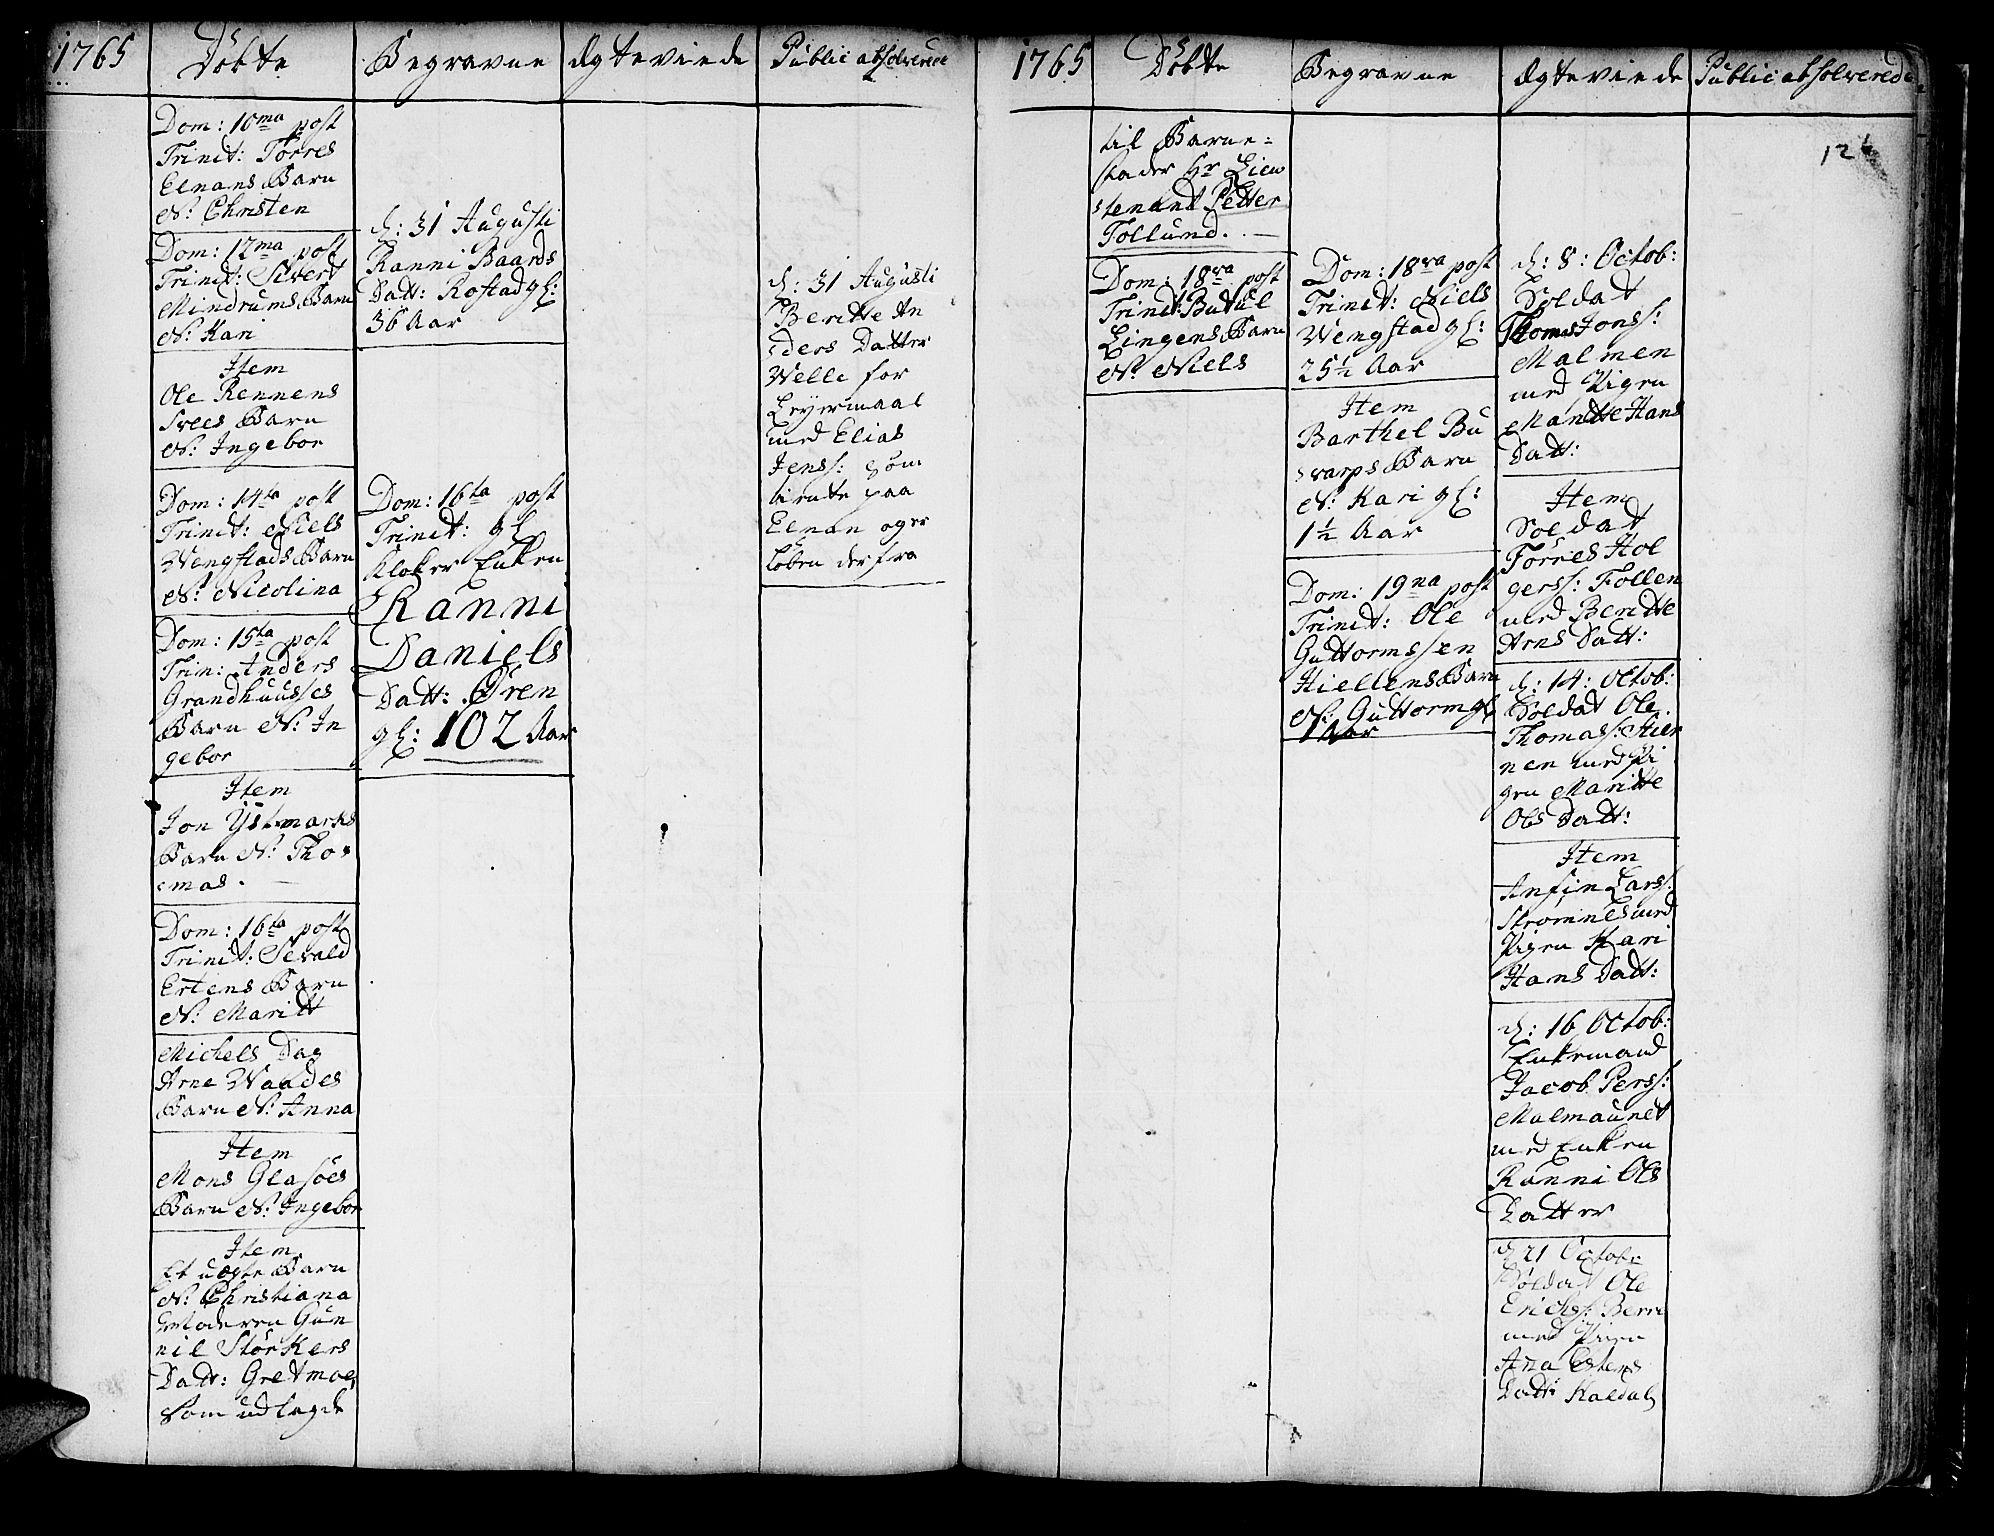 1765
Döbte
Dom: 10ma post
Trinit: Torres
Elnans Barn
N: Christen
Dom: 12ma post
Trinit: Sivert
Mindrums Barn
N: Kari
Item
Ole Rennens
Svees Barn
N: Ingebor
Dom: 14ta post
Trinit: Niels
Wengstads Barn
N: Nicolina
Dom: 15ta post
Trin: Anders
Grandhuusses
Barn N: In
gebor
Item
Jon Ystmarks
Barn N: Tho=
mas.
Dom: 16ta post
Trinit: Sevald
Ertens Barn
N: Maritt
Michels Dag
Arne Waades
Barn N: Anna
Item
Mons Glasöes
Barn N: Ingebor
Item
Et uægte Barn
N: Christiana
Moderen Gun
nil Störkers
Datt: Gretmoe,
som udlagde
Begravne
d: 31 Augusti
Ranni Baards
Datt: Rostad gl:
36 Aar
Dom: 16ta post
Trinit: gl
Kloker Enken
Ranni
Daniels
Datt: Ören
gl: 102 Aar
Ægteviede
Publicè absolverede
d: 31 Augusti
Beritte An
ders Datter
Welli for
Leyermaal
med Elias
Jenss: som
tiente paa
Elnan og er
löben derfra
1765
Döbte
til Barne=
fader Hr Lieu
tenant Petter
Tollund.
Dom: 18va post
Trinit: Butul
Lingens Barn
N: Niels
Begravne
Dom: 18va post
Trinit: Niels
Wengstad gl:
25½ Aar
Item
Barthel Bu
varps Barn
N: Kari gl:
1½ Aar
Dom: 19na post
Trinit: Ole
Guttormssen
Hiellens Barn
N: Guttorm gl
1 Aar
Ægteviede
d: 8: Octob:
Soldat
Thomas Jonss:
Malmen
med Pigen
Maritte Hans
Datt:
Item
Soldat
Torres Hol
gerss: Follen
med Beritte
Arns Datt:
d: 14: Octob:
Soldat Ole
Thomass: Hier
nen med Pi
gen Maritte
Ols Datt:
Item
Anfin Larss:
Strömnes med
Pigen Kari
Hans Datt:
d: 16 Octob:
Enkemand
Jacob Perss:
Malmaunet
med Enken
Ranni Ols
Datter
d 21 Octob:
Soldat Ole
Erichs: Berre
med Pigen
Ana Estens
Datt: Kaldal
Publicè absolverede